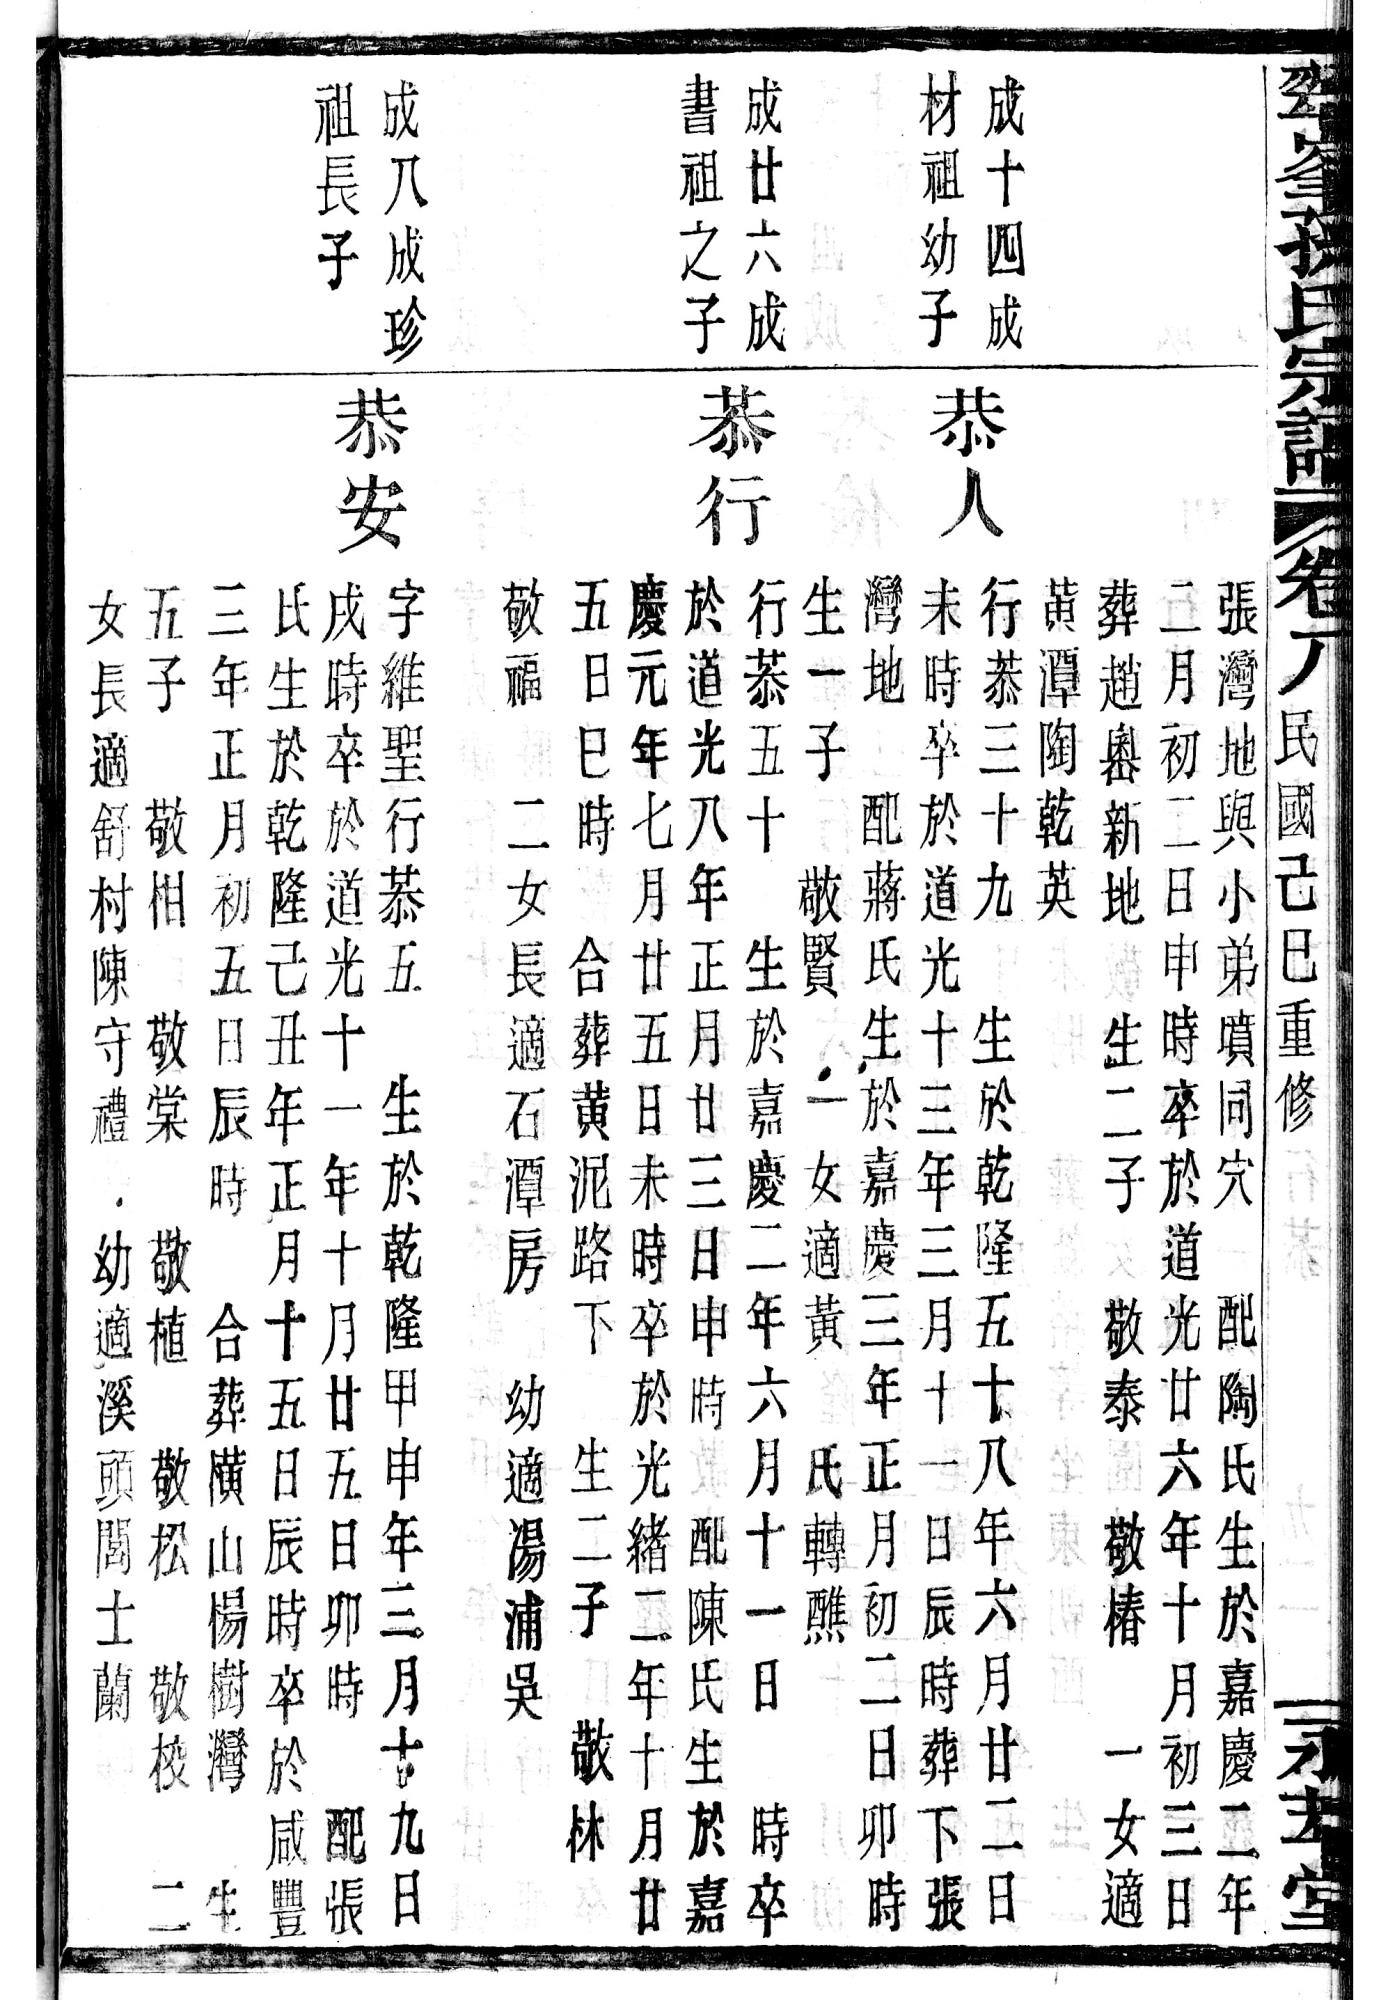 氏宗譜 卷八 民國己巳重修
堂
張灣地與小弟墳同穴 配陶氏生於嘉慶二年
二月初二日申時卒於道光廿六年十月初三日
葬趙嶴新地 生二子 敬泰 敬椿 一女適
黃潭陶乾英
成十四成
材祖幼子
恭人
行恭三十九 生於乾隆五十八年六月廿二日
未時卒於道光十三年三月十一日辰時葬下張
灣地 配蔣氏生於嘉慶三年正月初二日卯時
生一子 敬賢 一女適黃 氏轉醮
成廿六成
書祖之子
恭行
行恭五十 生於嘉慶二年六月十一日 時卒
於道光八年正月廿三日申時 配陳氏生於嘉
慶元年七月廿五日未時卒於光緒二年十月廿
五日巳時 合葬黃泥路下 生二子 敬林
敬福 二女長適石潭房 幼適湯浦吳
成八成珍
祖長子
恭安
字維聖行恭五 生於乾隆甲申年三月十九日
戌時卒於道光十一年十月廿五日卯時 配張
氏生於乾隆己丑年正月十五日辰時卒於咸豐
三年正月初五日辰時 合葬橫山楊樹灣 生
五子 敬柑 敬棠 敬植 敬松 敬校 二
女長適舒村陳守禮 幼適溪頭閻士蘭